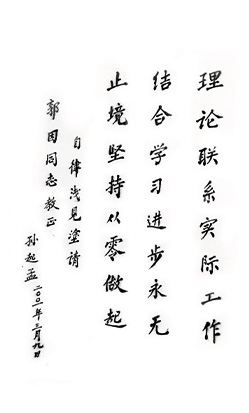 理论联系实际工作
结合学习进步永无
止境坚持从零做起
自律浅见塗请
郭因同志教正
孙起孟
二〇〇一年三月九日